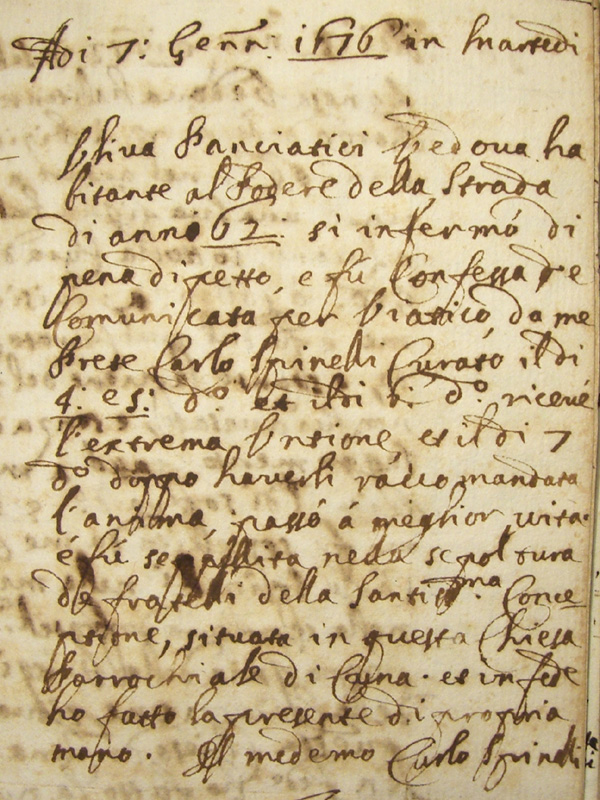 Adi 7: Genn: 1676 in Martedi
Vliva Panciatici Vedova ha
bitante al Podere della Strada
di anni 62: si infermó di
pena di petto, e fú Confessa e
Comunicata per Viatico, da me
Prete Carlo Spinelli Curato il di
4: e 5: do. et il di do. riceué
l'extrema Vntione, et il di 7
do doppo haverli racco mandata
l'anima, passó á meglior vita.
é fú sepellita nella sepoltura
de fratelli della Santissma. Conce
ptione, situata in questa Chiesa
Parrochiale di Cuna. et in fede
ho fatto la presente di propria
mano. Il medemo Carlo Spinelli